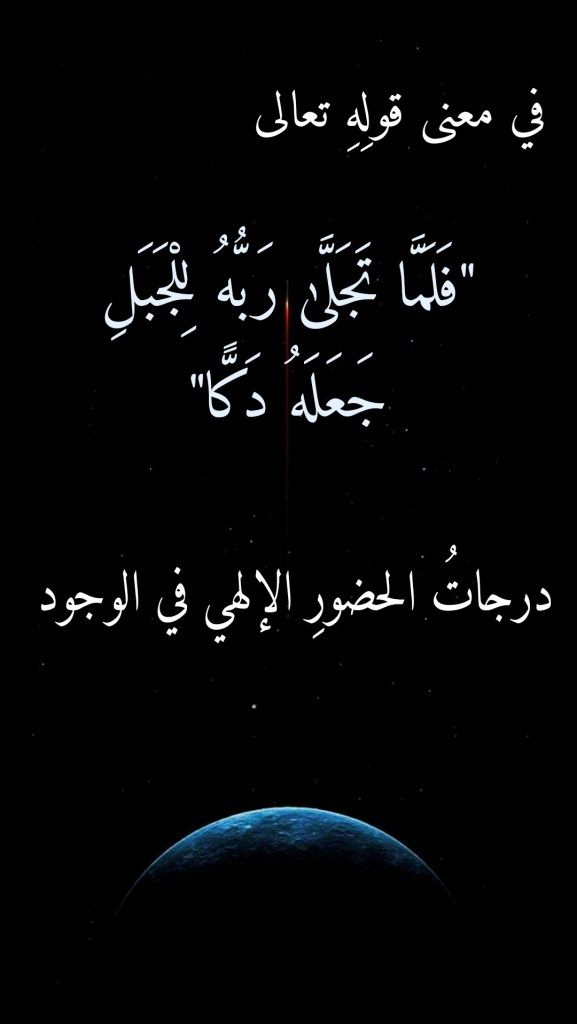 في معنى قولِهِ تعالى
"فَلَمَّا تَجَلَّىٰ رَبُّهُ لِلْجَبَلِ
جَعَلَهُ دَكًّا"
درجاتُ الحضورِ الإلهي في الوجود